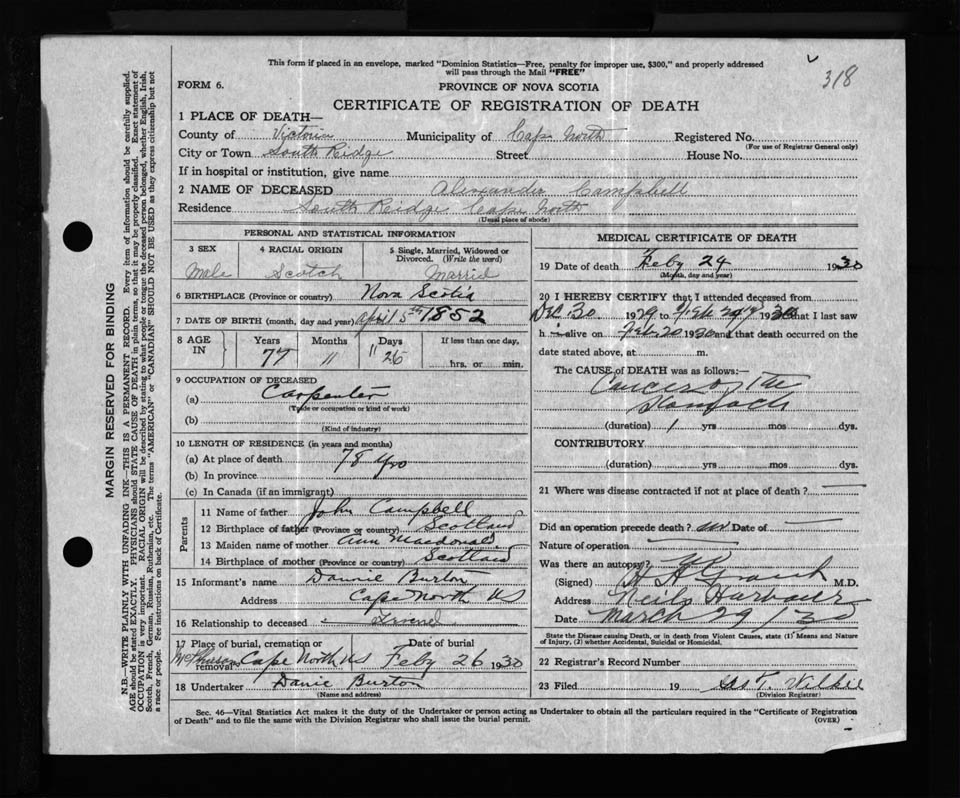 This form if placed in an envelope, marked "Dominion Statistics—Free, penalty for improper use, $300," and properly addressed
will pass through the Mail "FREE"
318
FORM 6.
PROVINCE OF NOVA SCOTIA
CERTIFICATE OF REGISTRATION OF DEATH
1 PLACE OF DEATH—
County of Victoria Municipality of Cape North Registered No.
(For use of Registrar General only)
City or Town South Ridge Street House No.
If in hospital or institution, give name
2 NAME OF DECEASED Alexander Campbell
Residence South Reidge Cape North
(Usual place of abode)
PERSONAL AND STATISTICAL INFORMATION
3 SEX 4 RACIAL ORIGIN 5 Single, Married, Widowed or
Divorced. (Write the word)
Male Scotch Married
6 BIRTHPLACE (Province or country) Nova Scotia
7 DATE OF BIRTH (month, day and year) April 5th 1852
8 AGE IN Years Months Days If less than one day,
77 11 26 hrs. or min.
9 OCCUPATION OF DECEASED
(a) Carpenter
(Trade or occupation or kind of work)
(b)
(Kind of industry)
10 LENGTH OF RESIDENCE (in years and months)
(a) At place of death 78 yrs
(b) In province
(c) In Canada (if an immigrant)
Parents
11 Name of father John Campbell
12 Birthplace of father (Province or country) Scotland
13 Maiden name of mother Ann Macdonald
14 Birthplace of mother (Province or country) Scotland
15 Informant's name Dannie Burton
Address Cape North NS
16 Relationship to deceased Friend
17 Place of burial, cremation or removal Date of burial
Cape North NS Feby 26 1930
18 Undertaker Danie Burton
(Name and address)
MEDICAL CERTIFICATE OF DEATH
19 Date of death Feby 24 1930
(Month, day and year)
20 I HEREBY CERTIFY that I attended deceased from
Dec 30 1929 to Feb 24 1930 that I last saw
h alive on Feb 20 1930 and that death occurred on the
date stated above, at m.
The CAUSE of DEATH was as follows:—
Cancer of the
Stomach
(duration) 1 yrs mos dys.
CONTRIBUTORY
(duration) yrs mos dys.
21 Where was disease contracted if not at place of death?
Did an operation precede death? no Date of
Nature of operation
Was there an autopsy?
(Signed) M.D.
Address Neils Harbour
Date March 29 / 30
State the Disease causing Death, or in death from Violent Causes, state (1) Means and Nature
of Injury, (2) whether Accidental, Suicidal or Homicidal.
22 Registrar's Record Number
23 Filed 19 Wilkie
(Division Registrar)
Sec. 46—Vital Statistics Act makes it the duty of the Undertaker or person acting as Undertaker to obtain all the particulars required in the "Certificate of Registration
of Death" and to file the same with the Division Registrar who shall issue the burial permit.
(OVER)
MARGIN RESERVED FOR BINDING
N.B—WRITE PLAINLY WITH UNFADING INK—THIS IS A PERMANENT RECORD. Every item of information should be carefully supplied.
AGE should be stated EXACTLY. PHYSICIANS should STATE CAUSE OF DEATH in plain terms, so that it may be properly classified. Exact statement of
OCCUPATION is very important. RACIAL ORIGIN will be described by stating to what people or tongue the deceased person belonged, whether English, Irish,
Scotch, French, German, Russian, Ruthenian, etc. The terms "AMERICAN" or "CANADIAN" SHOULD NOT BE USED as they express citizenship but not
a race or people. See instructions on back of Certificate.